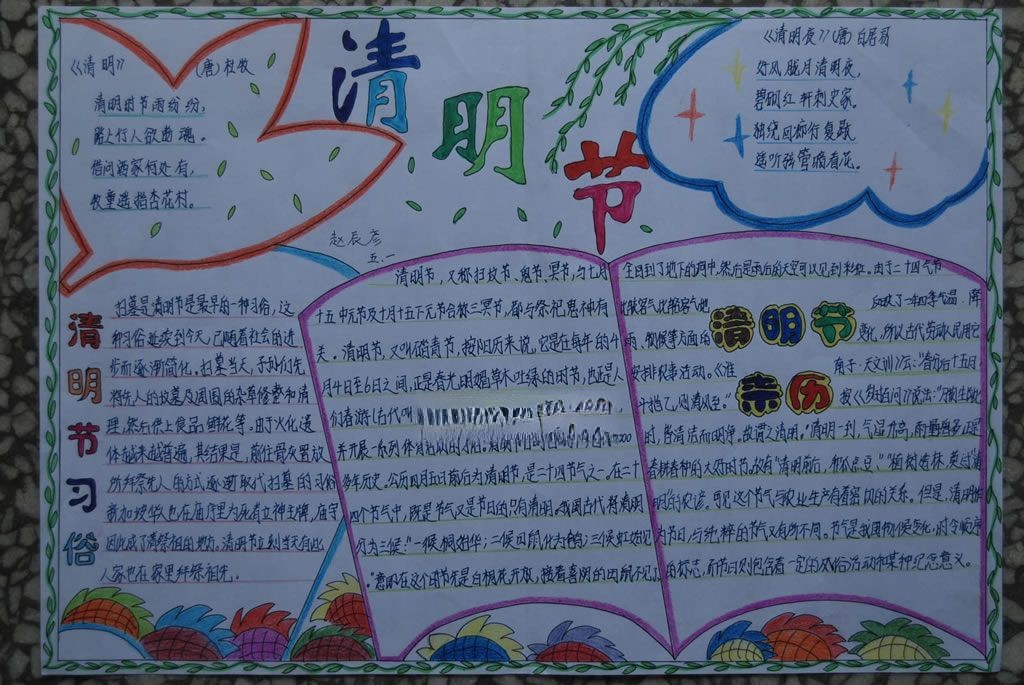 《清明》
(唐)杜牧
清明时节雨纷纷,
路上行人欲断魂。
借问酒家何处有,
牧童遥指杏花村。
清明节
《清明夜》(唐)白居易
好风胧月清明夜,
碧砌红轩刺史家。
独绕回廊行复歇,
遥听弦管暗看花。
赵辰彦
五.一
清明节习俗
扫墓是清明节最早的一种习俗,这
种习俗延续到今天,已随着社会的进
步而逐渐简化。扫墓当天,子孙们先
将先人的坟墓及周围的杂草修整和清
理,然后供上食品鲜花等。由于火化遗
体越来越普遍,其结果是,前往骨灰置放
拜祭先人的方式逐渐取代扫墓的习俗
新加坡华人也在庙宇里为死者立神主牌,庙宇
因此成了清祭祖的地方。清明节
人家也在家里拜祭祖先。
清明节,又称扫坟节、鬼节、冥节,与七月
十五中元节及十月十五下元节合称三冥节,都与祭祀鬼神有
关。清明节,又叫踏青节,按阳历来说,它是在每年的4
月4日至6日之间,正是春光明媚草木吐绿的时节,也正是人
们春游(古代叫
并开展一系列体育
多年历史。公历四月五日前后为清明节,是二十四节气之一。在二十
四个节气中,既是节气又是节日的只有清明。我国古代将清明
分为三候:“一候桐始华;二候田鼠化为鹌;三候虹始见
。”意即在这个时节先是白桐花开放,接着喜阴的田鼠不见了
全回到了地下的洞中,然后是雨后的天空可以见到彩虹。由于二十四节气
比较客气比较客气地
反映了一年四季气温、降
雨、物候等方面的
变化,所以古代劳动人民用它
安排农事活动。《淮
南子·天文训》云:“春分后十五日
斗指乙,则清风至。”
按《岁时百问》说法:“万物生长此
时,皆清洁而明净。故谓之清明。”清明一到,气温升高,雨量增多,正是
春耕春种的大好时节。故有“清明前后,种瓜点豆”“植树造林,莫过清
明”的农谚。可见这个节气与农业生产有着密切的关系。但是,清明作
为节日,与纯粹的节气又有所不同。节气是我国物候变化、时令顺序
的标志,而节日则包含着一定的风俗活动和某种纪念意义。
清明节
来历